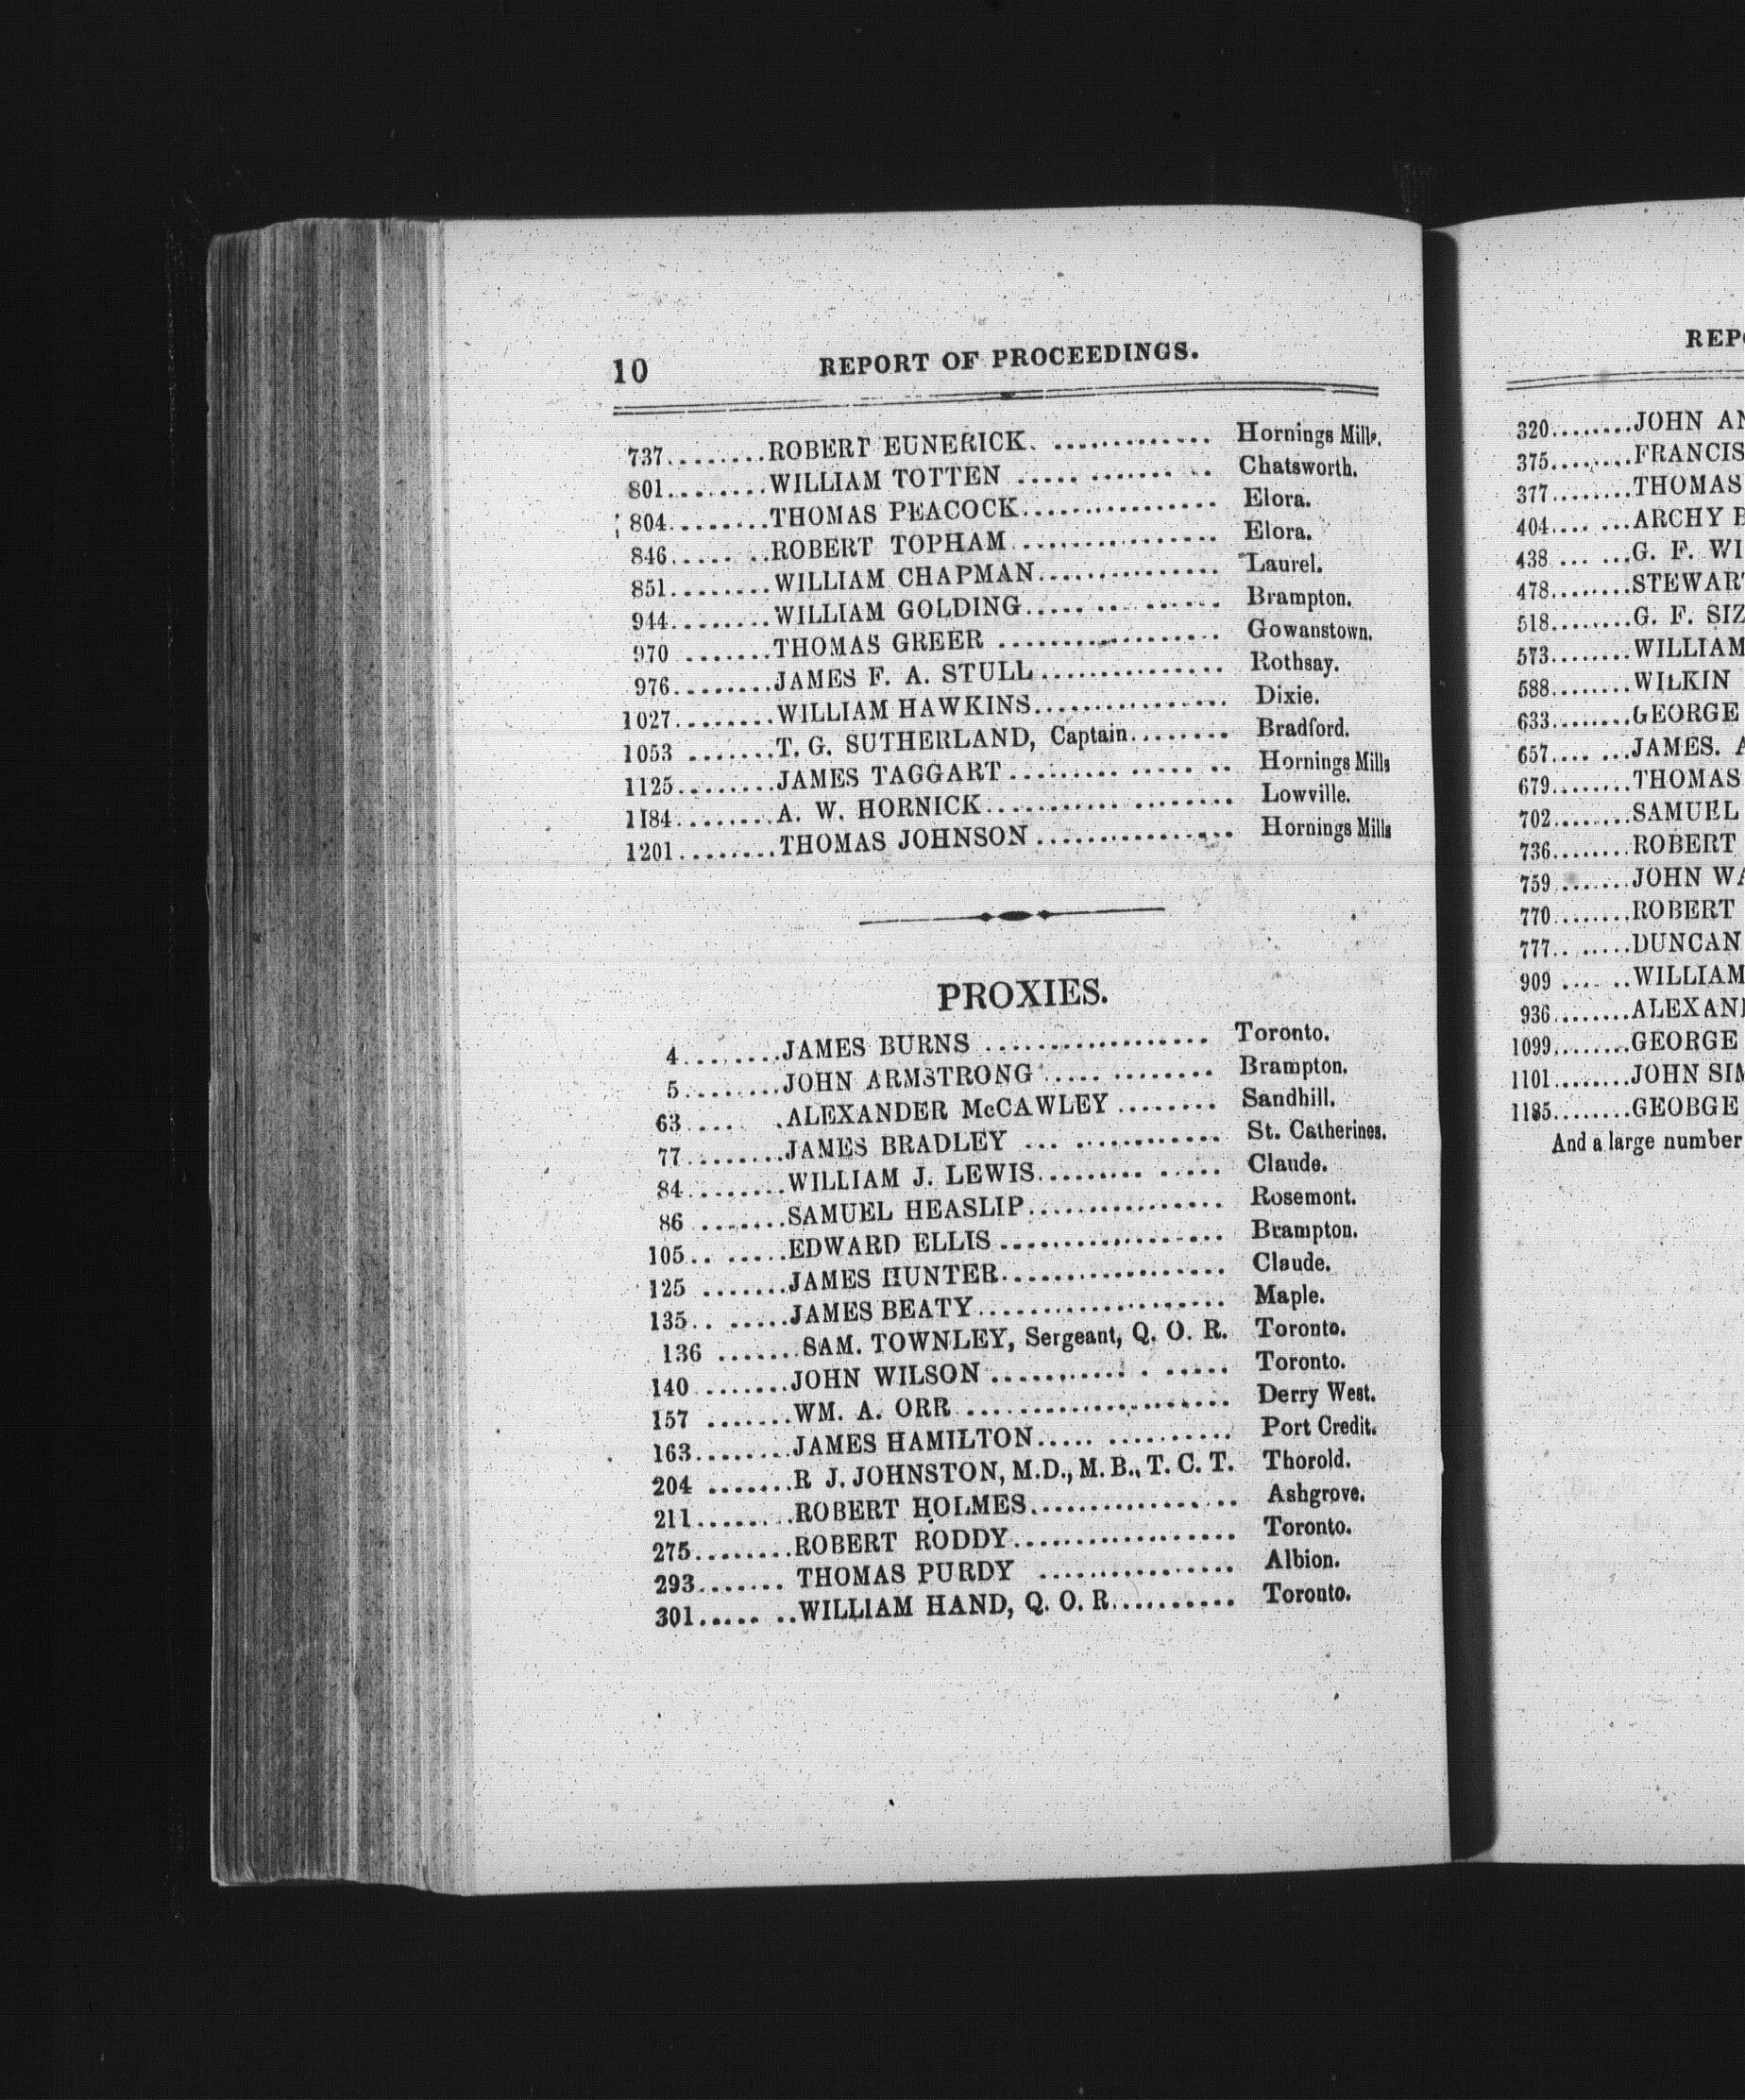 10 REPORT OF PROCEEDINGS.
737........ROBERT EUNERICK. ............. Hornings Mills.
801........WILLIAM TOTTEN ..... .......... Chatsworth.
804........THOMAS PEACOCK................ Elora.
846..... ..ROBERT TOPHAM................. Elora.
851........WILLIAM CHAPMAN............... Laurel.
944........WILLIAM GOLDING..... .. ...... Brampton.
970 .......THOMAS GREER .................. Gowanstown.
976........JAMES F. A. STULL............... Rothsay.
1027........WILLIAM HAWKINS................ Dixie.
1053 .......T. G. SUTHERLAND, Captain........ Bradford.
1125........JAMES TAGGART ......... ..... .. Hornings Mills
1184........A. W. HORNICK............ ........ Lowville.
1201........THOMAS JOHNSON ................ Hornings Mills
PROXIES.
4........JAMES BURNS .................. Toronto.
5........JOHN ARMSTRONG ..... ........ Brampton.
63.... .ALEXANDER McCAWLEY ........ Sandhill.
77........JAMES BRADLEY ... ............ St. Catherines.
84........WILLIAM J. LEWIS......... ..... Claude.
86 .......SAMUEL HEASLIP................ Rosemont.
105.. .....EDWARD ELLIS .................. Brampton.
125 .......JAMES HUNTER.................. Claude.
135.. .....JAMES BEATY.................... Maple.
136 .......SAM. TOWNLEY, Sergeant, Q. O. R. Toronto.
140 .......JOHN WILSON ........... . ..... Toronto.
157 .......WM. A. ORR ..................... Derry West.
163........JAMES HAMILTON..... .......... Port Credit.
204 .......R J. JOHNSTON, M.D., M. B., T. C. T. Thorold.
211........ROBERT HOLMES................. Ashgrove.
275........ROBERT RODDY.................. Toronto.
293....... THOMAS PURDY ................ Albion.
301..... ..WILLIAM HAND, Q. O. R.......... Toronto.
REP
320........JOHN AN
375........FRANCIS
377........THOMAS
404.... ...ARCHY B
438 ... ...G. F. WI
478........STEWART
518........G. F. SIZ
573........WILLIAM
588........WILKIN
633........GEORGE
657.... ...JAMES. A
679........THOMAS
702........SAMUEL
736........ROBERT
759 .......JOHN WA
770........ROBERT
777.. .....DUNCAN
909 .... ..WILLIAM
936........ALEXAN
1099........GEORGE
1101........JOHN SIM
1185........GEOBGE
And a large number